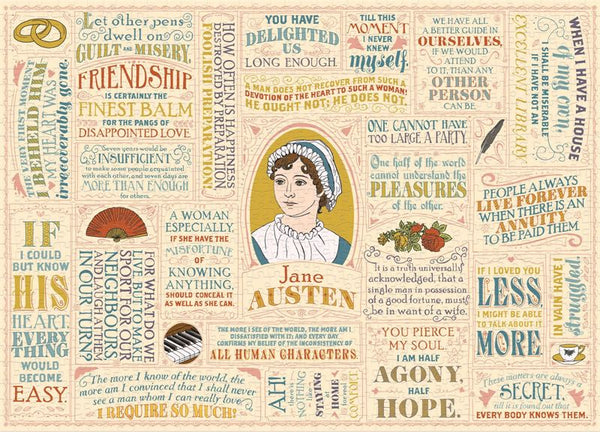 Let other pens
dwell on
GUILT AND MISERY.
THE VERY FIRST MOMENT
I BEHELD HIM
MY HEART WAS
irrecoverably gone.
FRIENDSHIP
IS CERTAINLY THE
FINEST BALM
FOR THE PANGS OF
DISAPPOINTED LOVE.
Seven years would be
INSUFFICIENT
to make some people acquainted
with each other, and seven days are
MORE THAN ENOUGH
for others.
HOW OFTEN IS HAPPINESS
DESTROYED BY PREPARATION,
FOOLISH PREPARATION!
YOU HAVE
DELIGHTED
US
LONG ENOUGH.
TILL THIS
MOMENT
I NEVER
KNEW
myself.
WE HAVE ALL
A BETTER GUIDE IN
OURSELVES,
IF WE WOULD
ATTEND
TO IT, THAN ANY
OTHER
PERSON
CAN BE.
WHEN I HAVE A HOUSE
of my own,
I SHALL BE MISERABLE
IF I HAVE NOT AN
EXCELLENT LIBRARY.
A MAN DOES NOT RECOVER FROM SUCH A
DEVOTION OF THE HEART TO SUCH A WOMAN!
HE OUGHT NOT; HE DOES NOT.
ONE CANNOT HAVE
TOO LARGE A PARTY.
One half of the world
cannot understand the
PLEASURES
of the other.
PEOPLE ALWAYS
LIVE FOREVER
WHEN THERE IS AN
ANNUITY
TO BE PAID THEM.
IF
I COULD
BUT KNOW
HIS
HEART,
EVERY
THING
WOULD
BECOME
EASY.
FOR WHAT DO WE
LIVE, BUT TO MAKE
SPORT FOR OUR
NEIGHBOURS,
AND LAUGH AT THEM
IN OUR TURN?
A WOMAN
ESPECIALLY,
IF SHE HAVE THE
MISFORTUNE
OF
KNOWING
ANYTHING,
SHOULD CONCEAL IT
AS WELL AS SHE CAN.
Jane
AUSTEN
It is a truth universally
acknowledged, that a
single man in possession
of a good fortune, must
be in want of a wife.
IF I LOVED YOU
LESS,
I MIGHT BE ABLE
TO TALK ABOUT IT
MORE.
IN VAIN HAVE I
struggled.
THE MORE I SEE OF THE WORLD, THE MORE AM I
DISSATISFIED WITH IT; AND EVERY DAY
CONFIRMS MY BELIEF OF THE INCONSISTENCY OF
ALL HUMAN CHARACTERS.
The more I know of the world, the
more am I convinced that I shall never
see a man whom I can really love.
I REQUIRE SO MUCH!
AH!
there is
NOTHING
like
STAYING
AT
HOME
for real
COMFORT.
YOU PIERCE
MY SOUL.
I AM HALF
AGONY,
HALF
HOPE.
These matters are always a
SECRET,
till it is found out that
EVERY BODY KNOWS THEM.